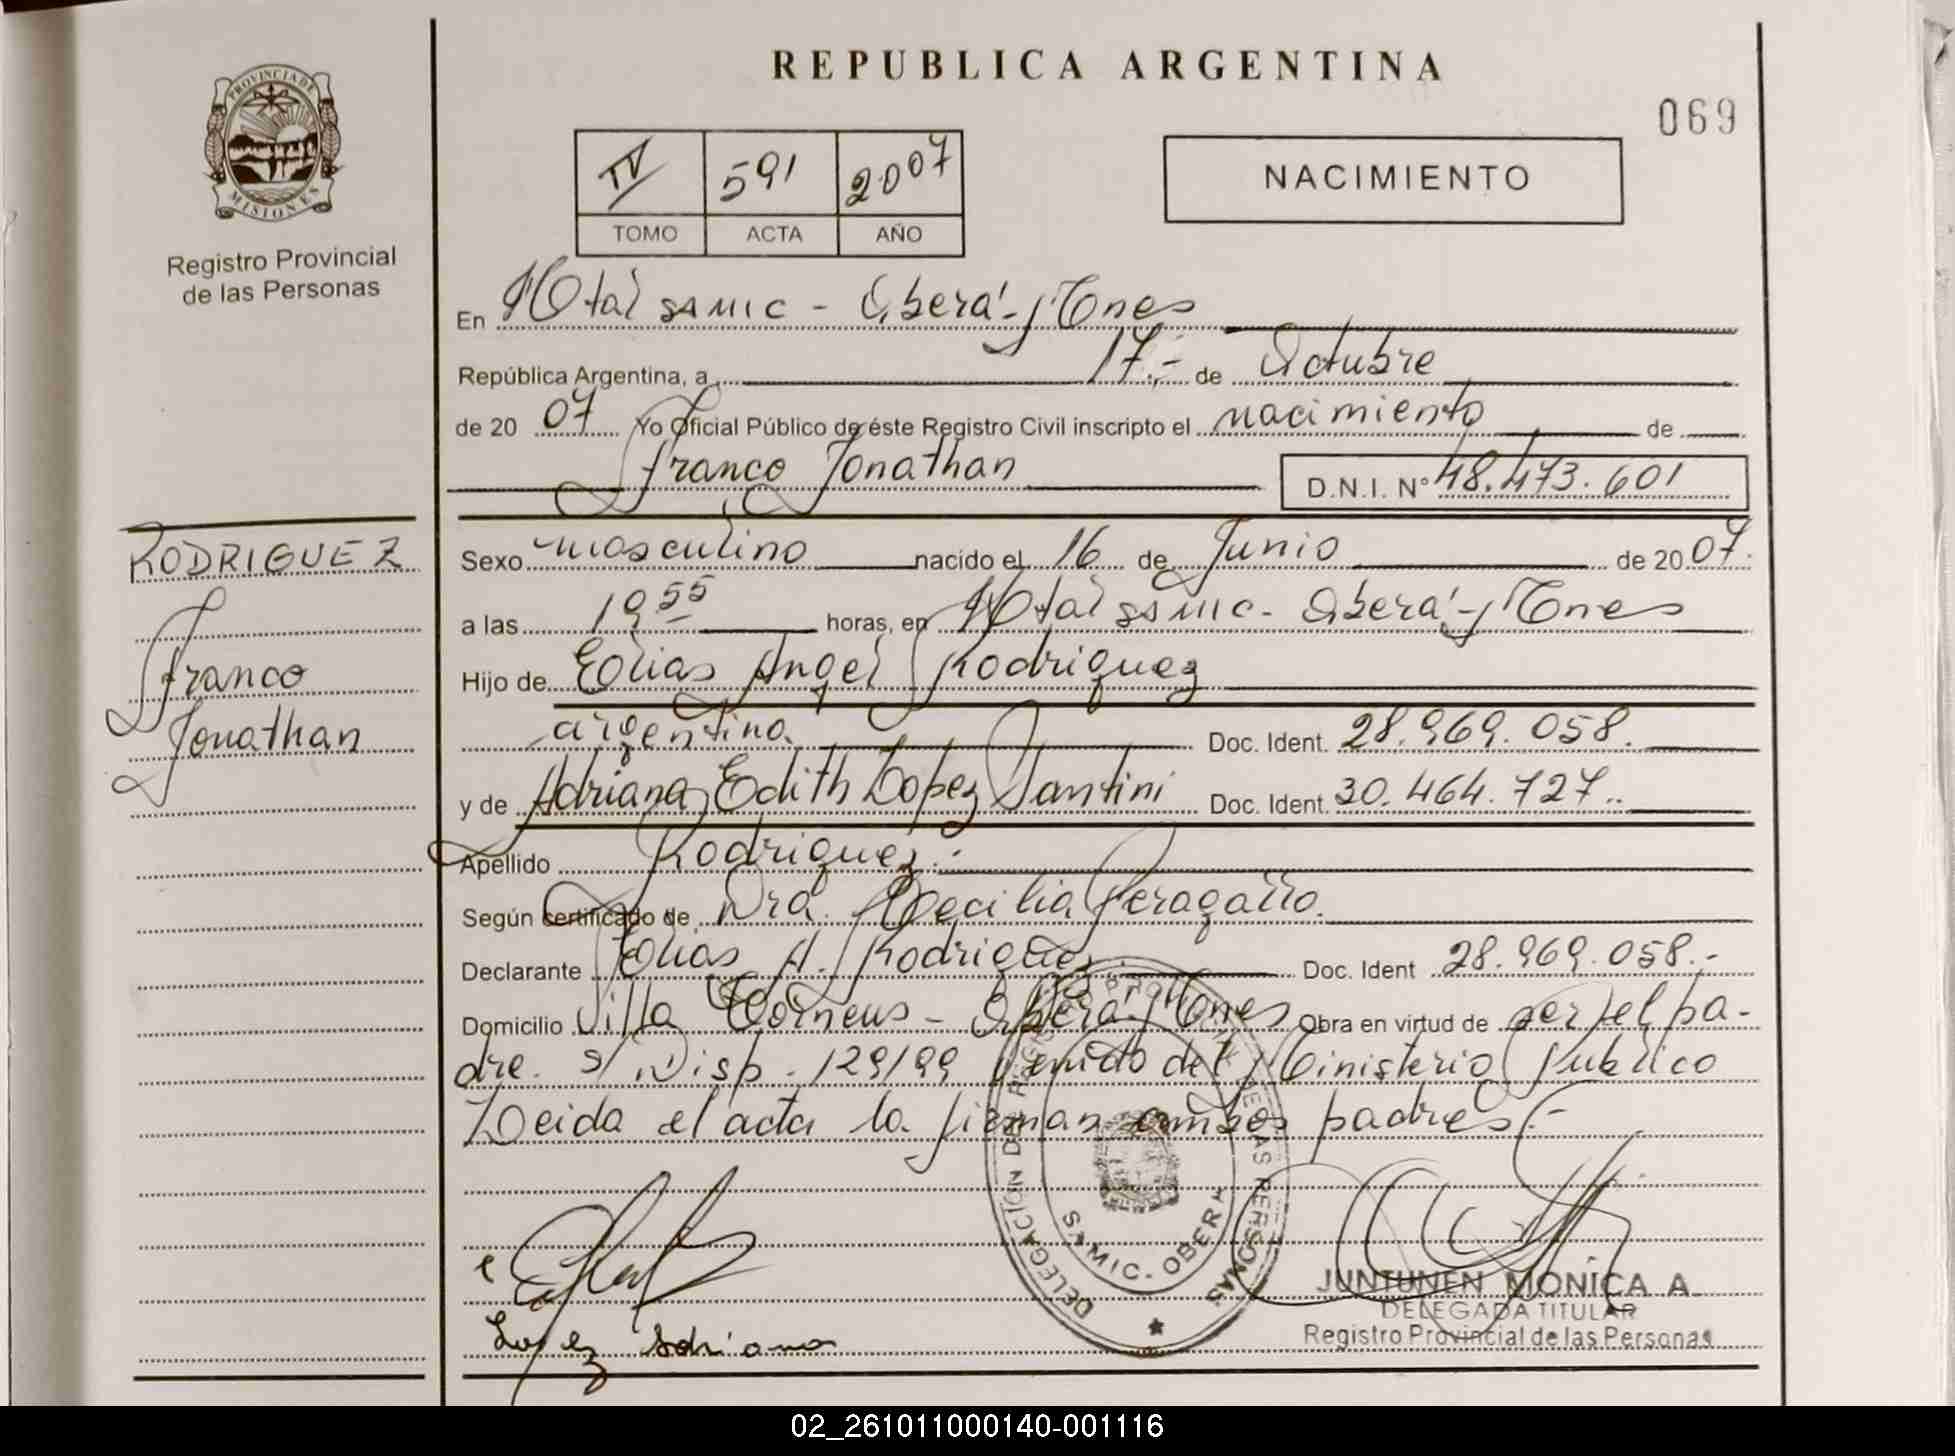 PROVINCIA DE
MISIONES
Registro Provincial
de las Personas
RODRIGUEZ
Franco
Jonathan
REPUBLICA ARGENTINA
069
IV 591 2007
TOMO ACTA AÑO
NACIMIENTO
En Hptal SAMIC - Oberá - Mnes
República Argentina, a 17.- de Octubre
de 2007 Yo Oficial Público de éste Registro Civil inscripto el nacimiento de
Franco Jonathan D.N.I. N° 48.473.601
Sexo masculino nacido el 16 de Junio de 2007.
a las 19 55 horas, en Hptal SAMIC - Oberá - Mnes
Hijo de Elias Angel Rodriguez
argentino. Doc. Ident. 28.969.058.
y de Adriana Edith Lopez Santini Doc. Ident. 30.464.727..
Apellido Rodriguez.-
Según certificado de Dra. Cecilia Peragallo.
Declarante Elias A. Rodriguez Doc. Ident 28.969.058.-
Domicilio Villa - Oberá - Mnes Obra en virtud de ser el pa-
dre. s/ Disp. 129/99 del Ministerio Publico
Leida el acta la firman ambos padres.-
DELEGACIÓN DEL REGISTRO PROVINCIAL DE LAS PERSONAS
SAMIC - OBERA
Lopez Adriana
JUNTUNEN MONICA A.
DELEGADA TITULAR
Registro Provincial de las Personas
02_261011000140-001116